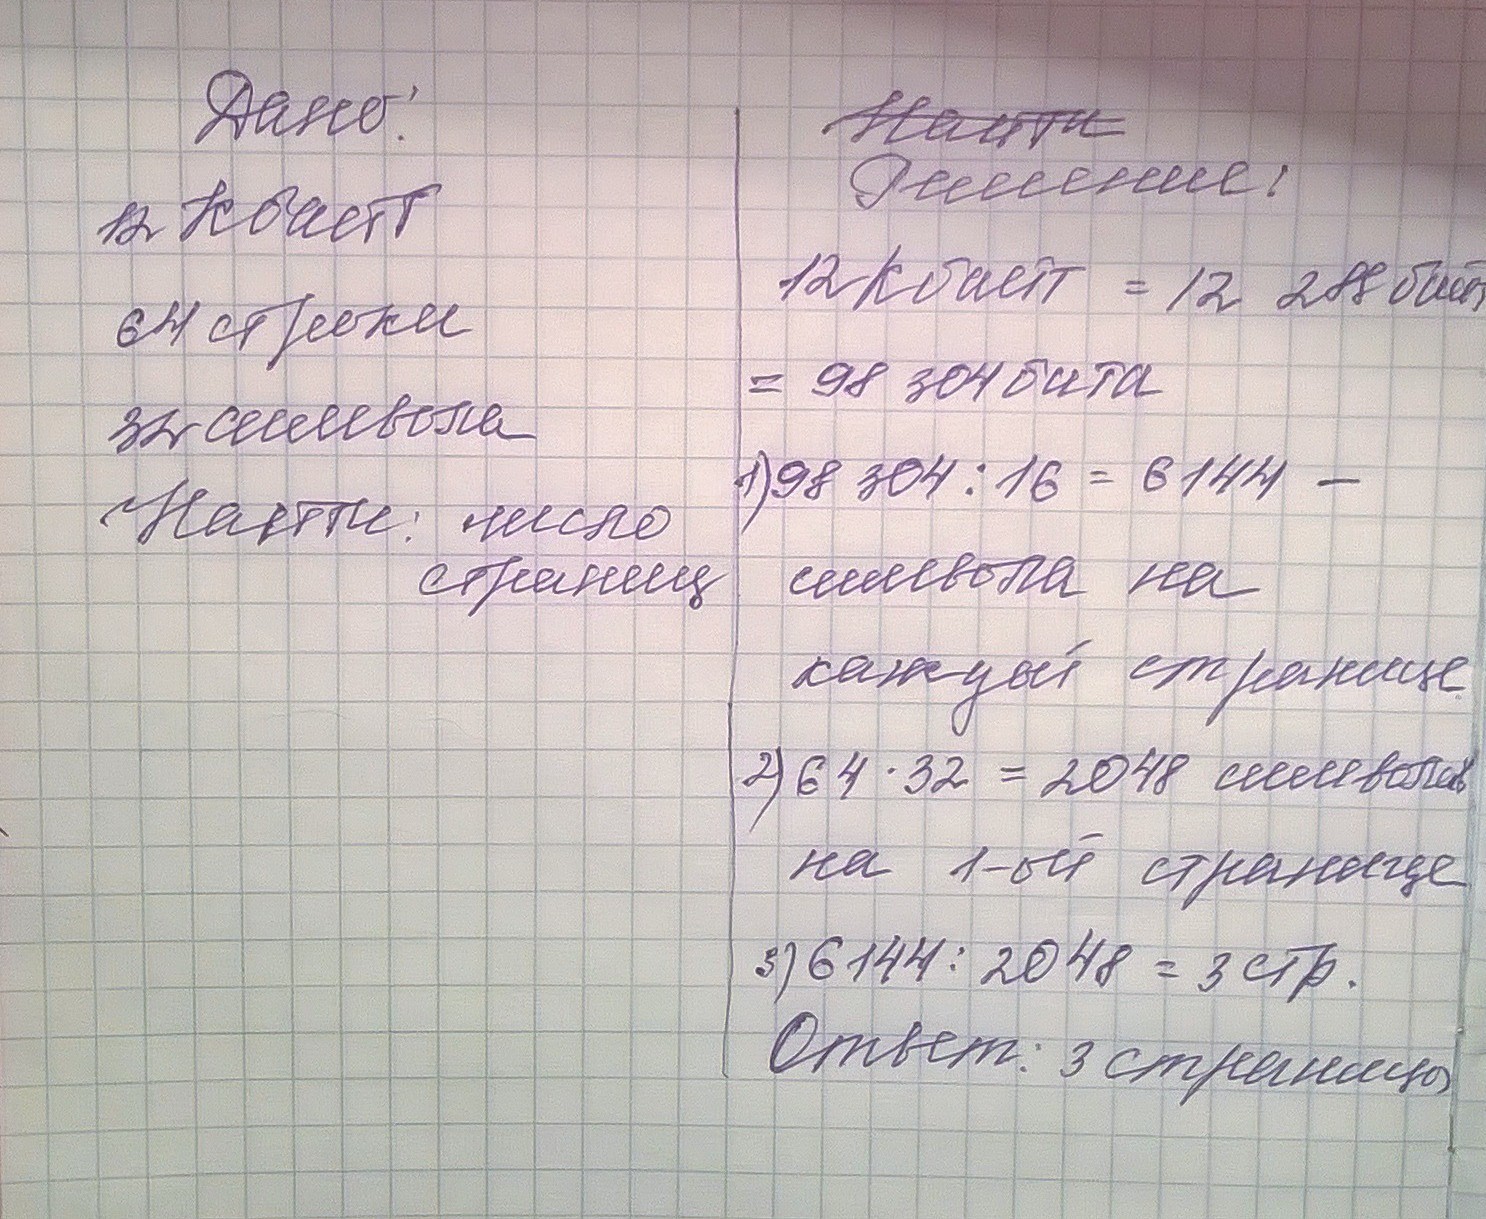 Дано:
12 Кбайт
64 строки
32 символа
Найти: число
страниц
Найти
Решение:
12 Кбайт = 12 288 байт
= 98 304 бита
1) 98 304 : 16 = 6144 –
символа на
каждый странице
2) 64 · 32 = 2048 символов
на 1-ой странице
3) 6144 : 2048 = 3 стр.
Ответ: 3 страницы